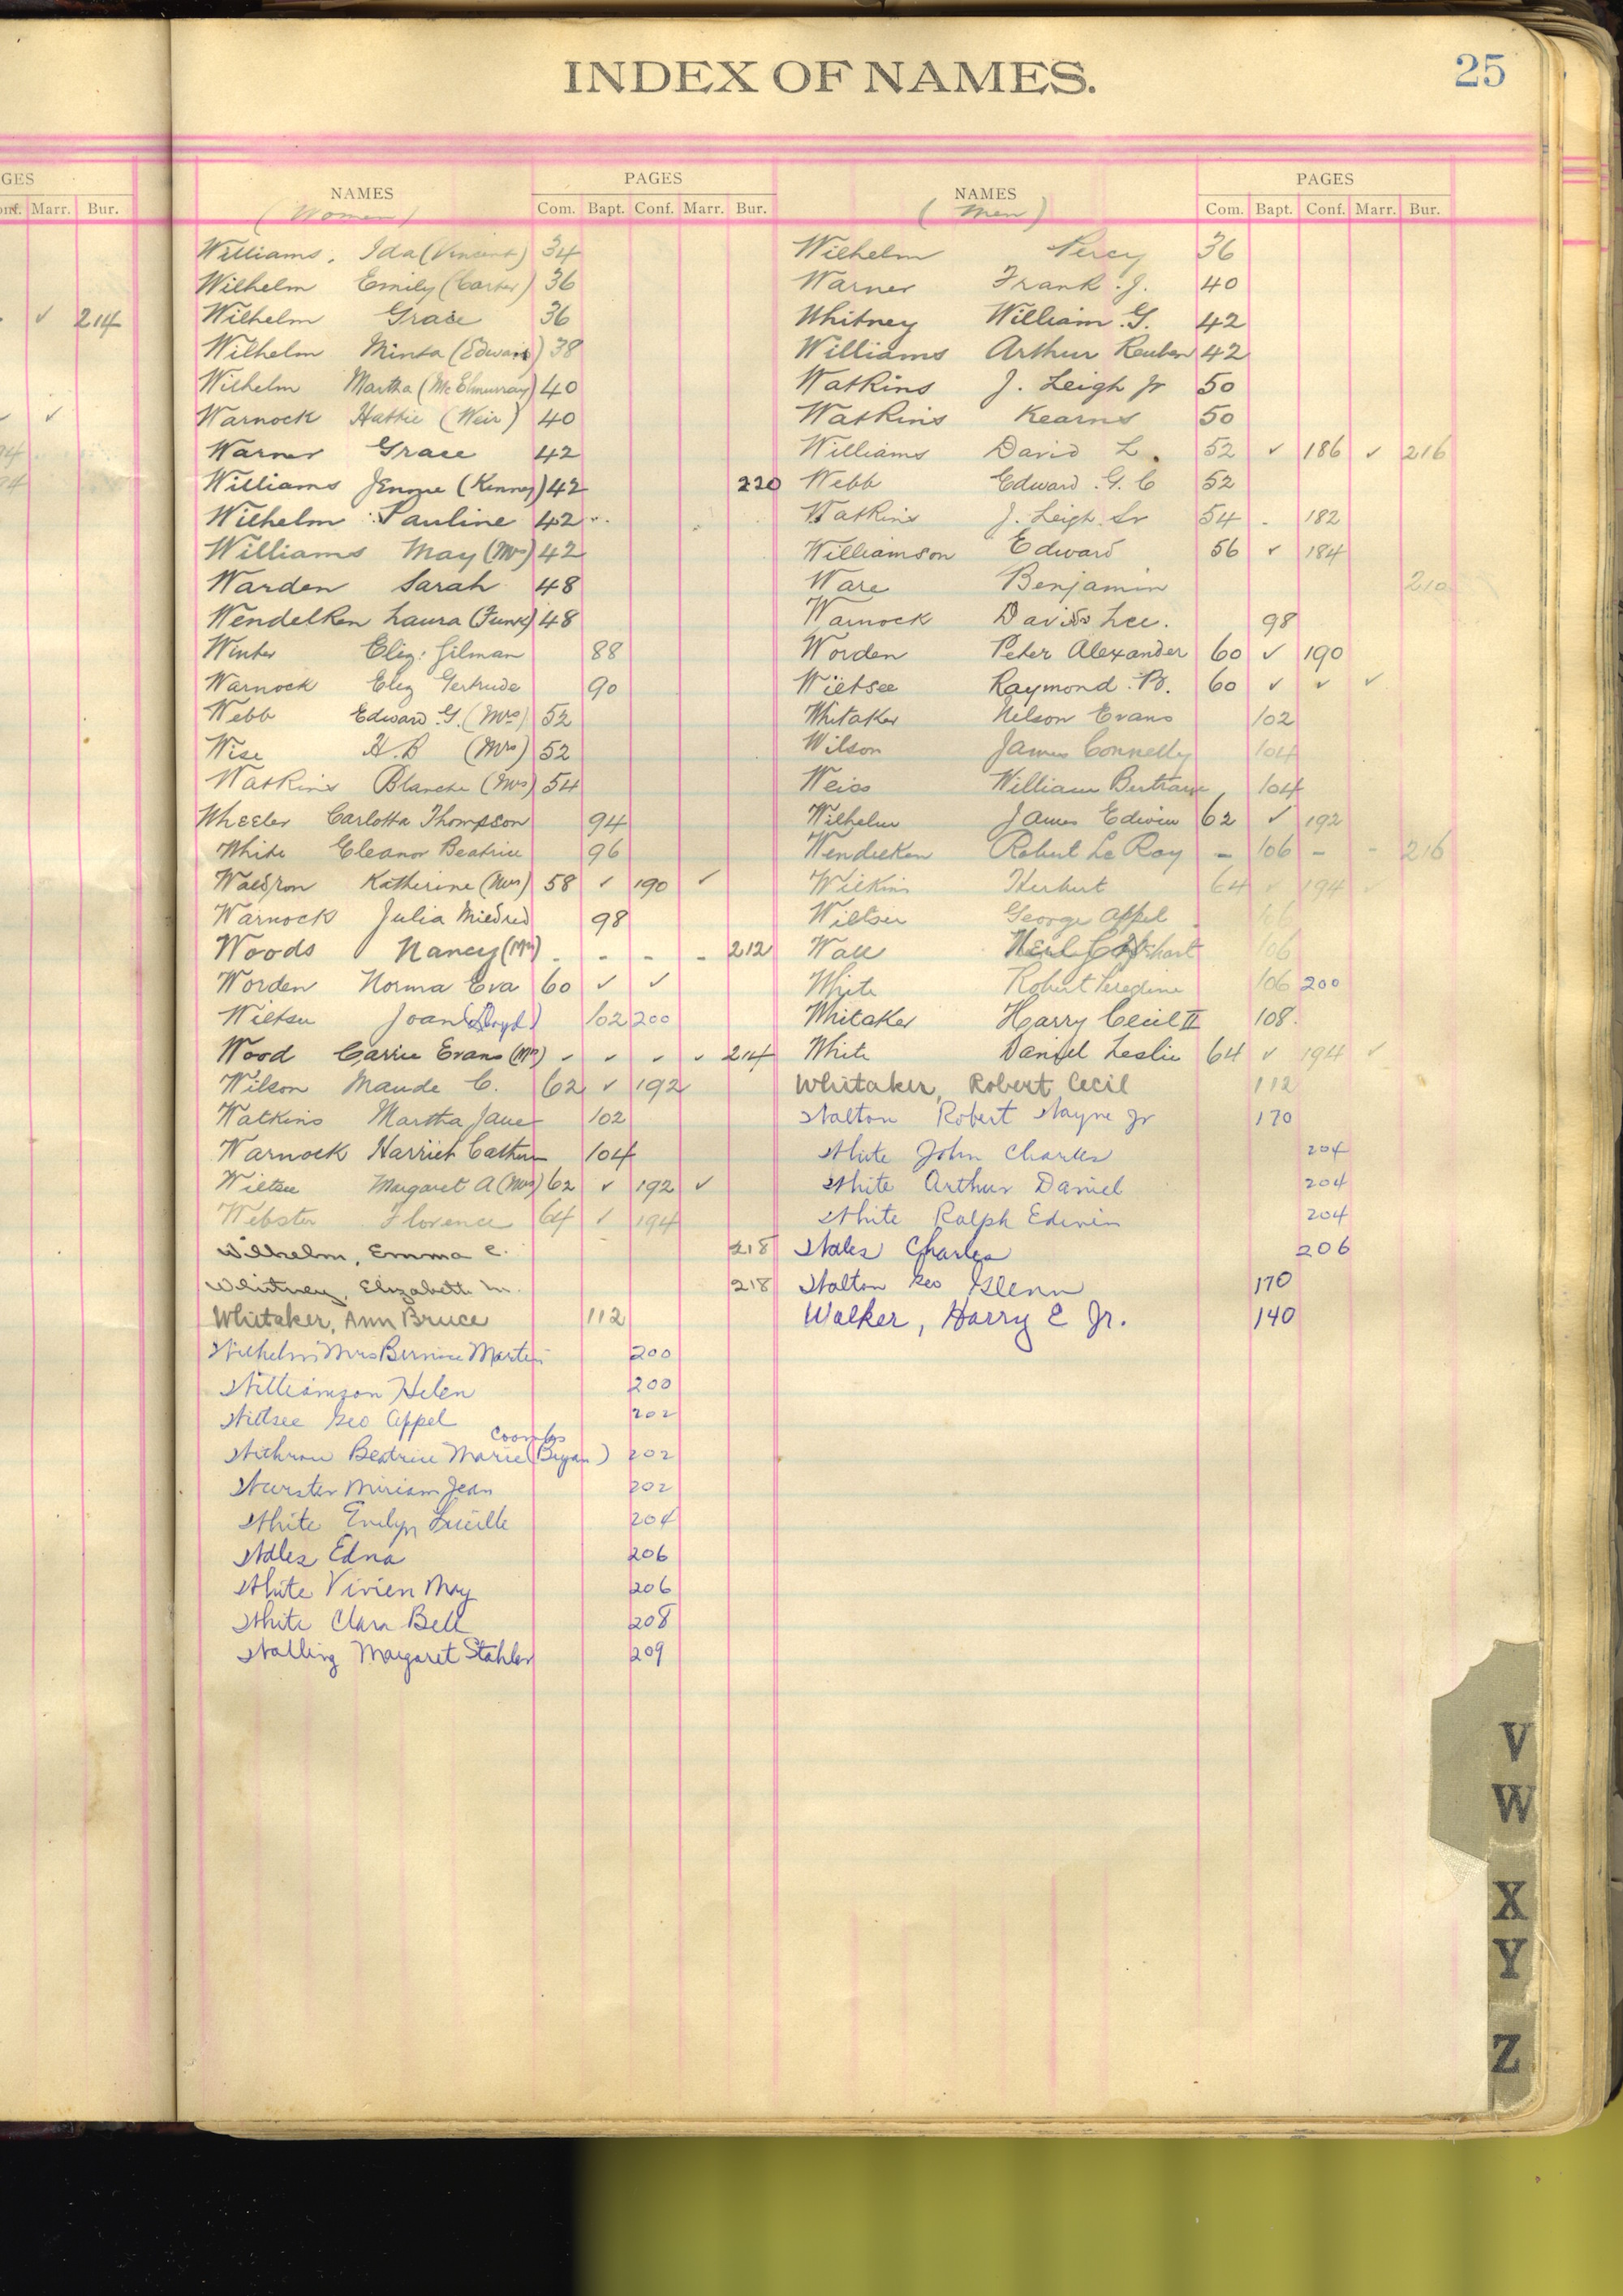 INDEX OF NAMES.
25
GES
Conf. Marr. Bur.
✓ 214
✓
NAMES
(Women)
PAGES
Com. Bapt. Conf. Marr. Bur.
Williams, Ida (Vincent) 34
Wilhelm Emily (Carter) 36
Wilhelm Grace 36
Wilhelm Minta (Edwards) 38
Wilhelm Martha (McElmurray) 40
Warnock Hattie (Weir) 40
Warner Grace 42
Williams Jennie (Kenney) 42 220
Wilhelm Pauline 42
Williams May (Mrs) 42
Warden Sarah 48
Wendelken Laura (Funk) 48
Winter Eliz: Gilman 88
Warnock Eliz Gertrude 90
Webb Edward G. (Mrs) 52
Wise H. B (Mrs) 52
Watkins Blanche (Mrs) 54
Wheeler Carlotta Thompson 94
White Eleanor Beatrice 96
Waldron Katherine (Mrs) 58 ✓ 190 ✓
Warnock Julia Mildred 98
Woods Nancy (Mrs) - - - - 212
Worden Norma Eva 60 ✓ ✓
Wiltsee Joan (Lloyd) 102 200
Wood Carrie Evans (Mrs) - - - - 214
Wilson Maude C. 62 ✓ 192
Watkins Martha Jane 102
Warnock Harriet Cathern 104
Wiltsee Margaret A (Mrs) 62 ✓ 192 ✓
Webster Florence 64 ✓ 194
Wilhelm, Emma C. 218
Whitney, Elizabeth M. 218
Whitaker, Ann Bruce 112
Wilhelm Mrs Bernice Martin 200
Williamson Helen 200
Wiltsee Geo Appel 202
Coombs
Withrow Beatrice Marie (Bryan) 202
Wurster Miriam Jean 202
White Evelyn Lucille 204
Wales Edna 206
White Vivien May 206
White Clara Bell 208
Walling Margaret Stahler 209
NAMES
(Men)
PAGES
Com. Bapt. Conf. Marr. Bur.
Wilhelm Percy 36
Warner Frank J. 40
Whitney William G. 42
Williams Arthur Reuben 42
Watkins J. Leigh Jr 50
Watkins Kearns 50
Williams David L. 52 ✓ 186 ✓ 216
Webb Edward G. C 52
Watkins J. Leigh Sr 54 - 182
Williamson Edward 56 ✓ 184
Ware Benjamin 210
Warnock David Lee. 98
Worden Peter Alexander 60 ✓ 190
Wiltsee Raymond B. 60 ✓ ✓ ✓
Whitaker Nelson Evans 102
Wilson James Connelly 104
Weiss William Bertram 104
Wilhelm James Edwin 62 ✓ 192
Wendelken Robert Le Roy - 106 - - 216
Wilkins Herbert 64 ✓ 194 ✓
Wiltsee George Appel 106
Wall 106
White Robert Peregrine 106 200
Whitaker Harry Cecil II 108.
White Daniel Leslie 64 ✓ 194 ✓
Whitaker, Robert Cecil 112
Walton Robert Wayne Jr 170
White John Charles 204
White Arthur Daniel 204
White Ralph Edwin 204
Wales Charles 206
Walton Geo Glenn 170
Walker, Harry E Jr. 140
V
W
X
Y
Z